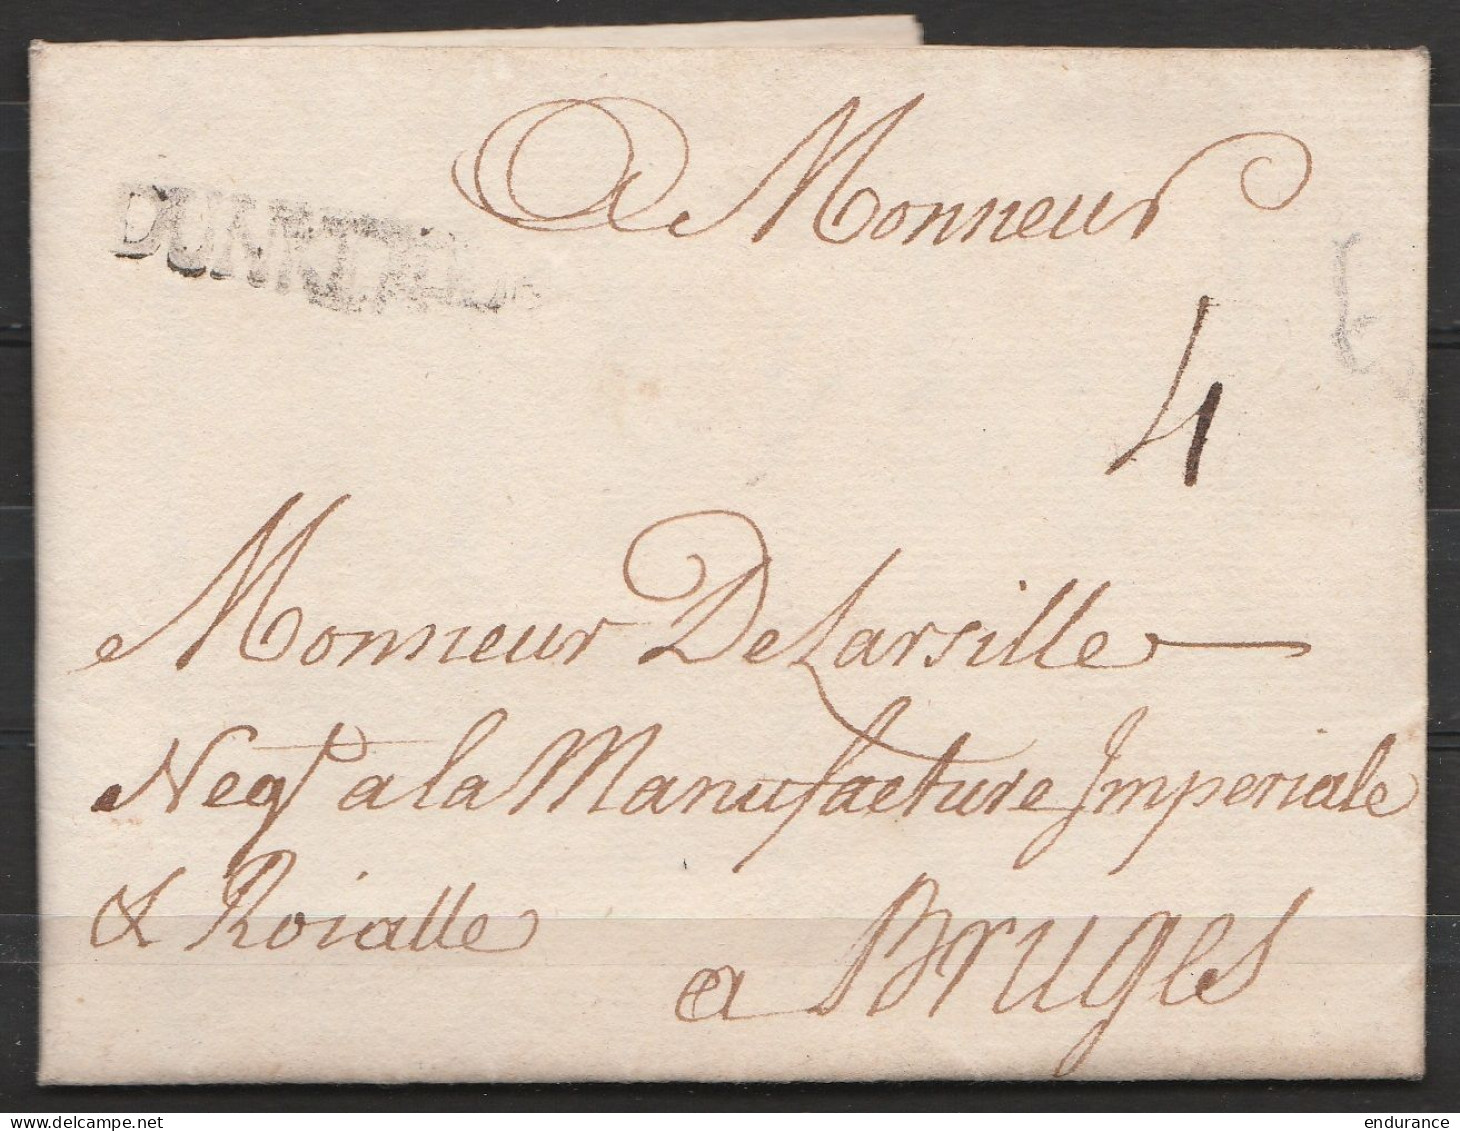 A Monneur
DUNKERQUE
4
Monneur DeLarsille
Neg.t a la Manufacture Imperiale
& Roialle
a Bruges
delcampe.net
endurance